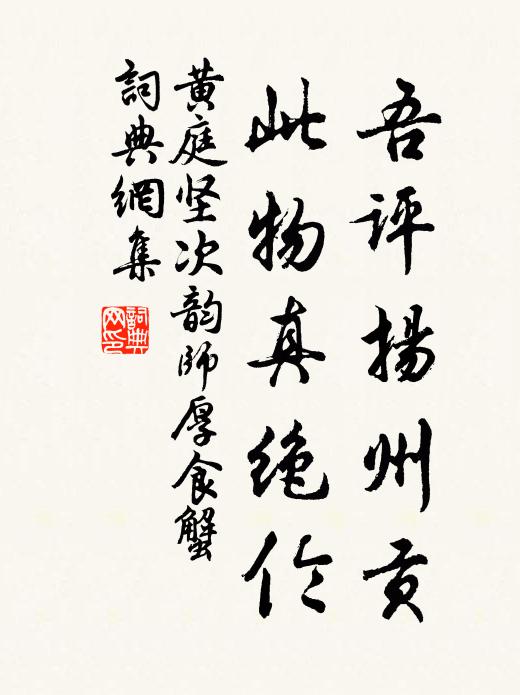 吾评揚州贡
此物真绝伦
黄庭坚次韵師厚食蟹
詞典網集
詞典网印